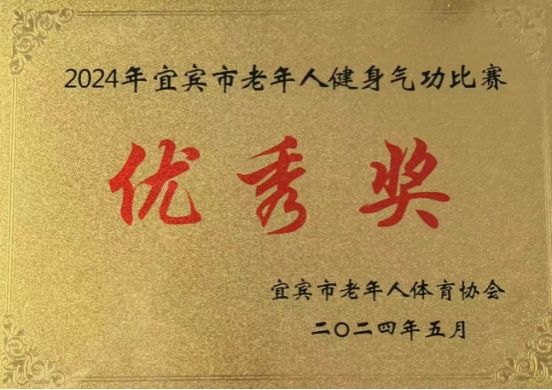 2024年宜宾市老年人健身气功比赛
优秀奖
宜宾市老年人体育协会
二〇二四年五月